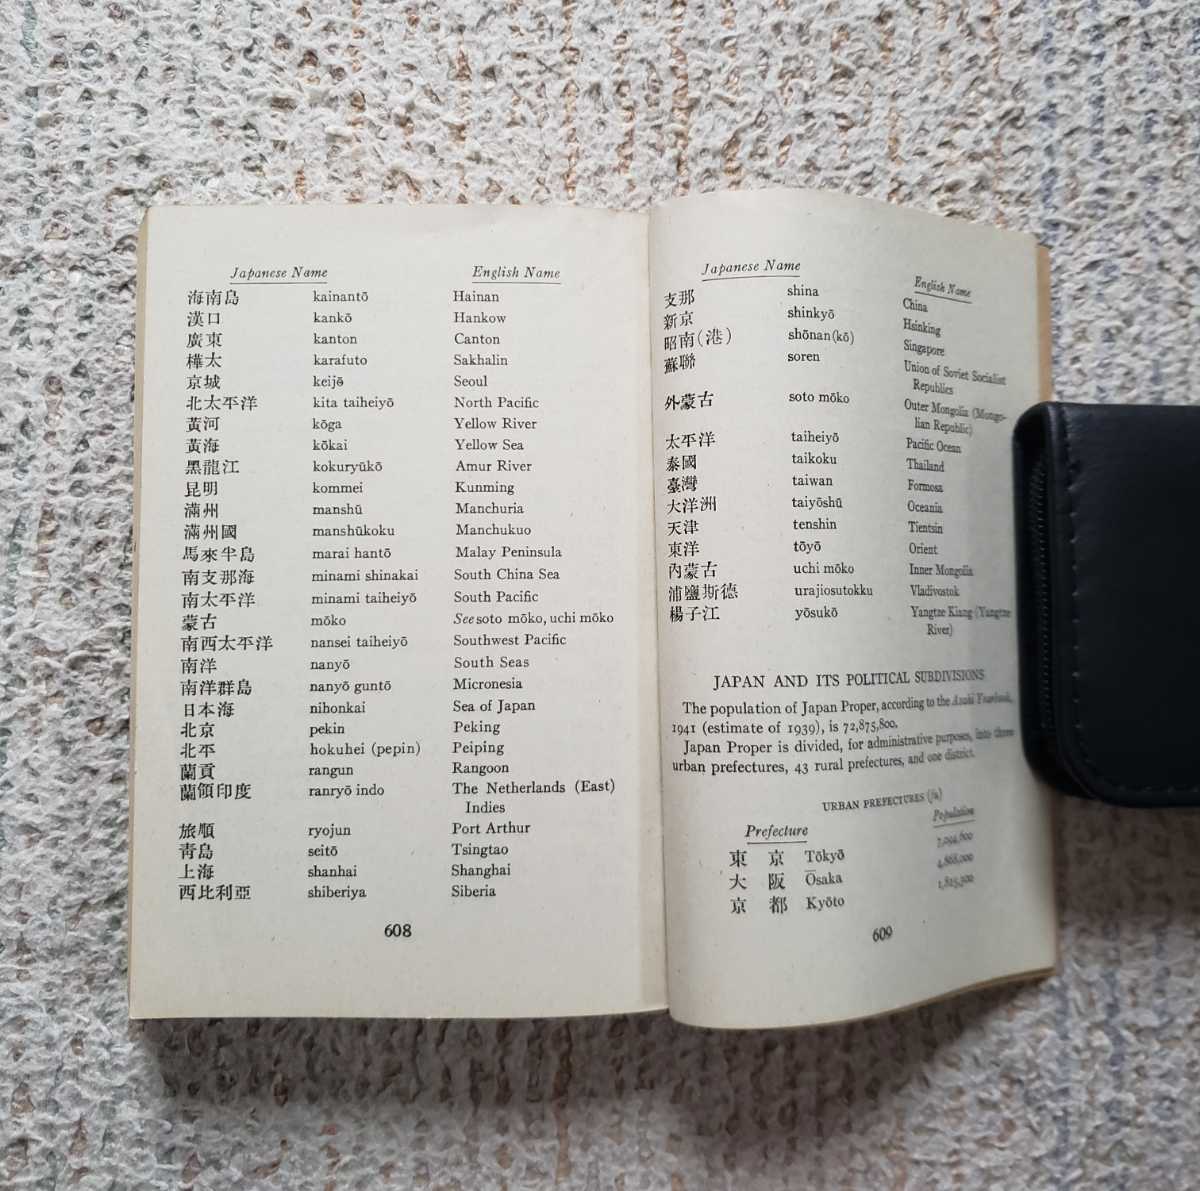 Japanese Name English Name
海南島 kainantō Hainan
漢口 kankō Hankow
廣東 kanton Canton
樺太 karafuto Sakhalin
京城 keijō Seoul
北太平洋 kita taiheiyō North Pacific
黃河 kōga Yellow River
黃海 kōkai Yellow Sea
黑龍江 kokuryūkō Amur River
昆明 kommei Kunming
滿州 manshū Manchuria
滿州國 manshūkoku Manchukuo
馬來半島 marai hantō Malay Peninsula
南支那海 minami shinakai South China Sea
南太平洋 minami taiheiyō South Pacific
蒙古 mōko See soto mōko, uchi mōko
南西太平洋 nansei taiheiyō Southwest Pacific
南洋 nanyō South Seas
南洋群島 nanyō guntō Micronesia
日本海 nihonkai Sea of Japan
北京 pekin Peking
北平 hokuhei (pepin) Peiping
蘭貢 rangun Rangoon
蘭領印度 ranryō indo The Netherlands (East)
Indies
旅順 ryojun Port Arthur
靑島 seitō Tsingtao
上海 shanhai Shanghai
西比利亞 shiberiya Siberia
608
Japanese Name English Name
支那 shina China
新京 shinkyō Hsinking
昭南(港) shōnan(kō) Singapore
蘇聯 soren Union of Soviet Socialist
Republics
外蒙古 soto mōko Outer Mongolia (Mongo-
lian Republic)
太平洋 taiheiyō Pacific Ocean
泰國 taikoku Thailand
臺灣 taiwan Formosa
大洋洲 taiyōshū Oceania
天津 tenshin Tientsin
東洋 tōyō Orient
內蒙古 uchi mōko Inner Mongolia
浦鹽斯德 urajiosutokku Vladivostok
楊子江 yōsukō Yangtze Kiang (Yangtze
River)
JAPAN AND ITS POLITICAL SUBDIVISIONS
The population of Japan Proper, according to the Asahi Yearbook,
1941 (estimate of 1939), is 72,875,800.
Japan Proper is divided, for administrative purposes, into three
urban prefectures, 43 rural prefectures, and one district.
URBAN PREFECTURES (fu)
Prefecture Population
東京 Tōkyō 7,094,600
大阪 Ōsaka 4,868,000
京都 Kyōto 1,825,300
609